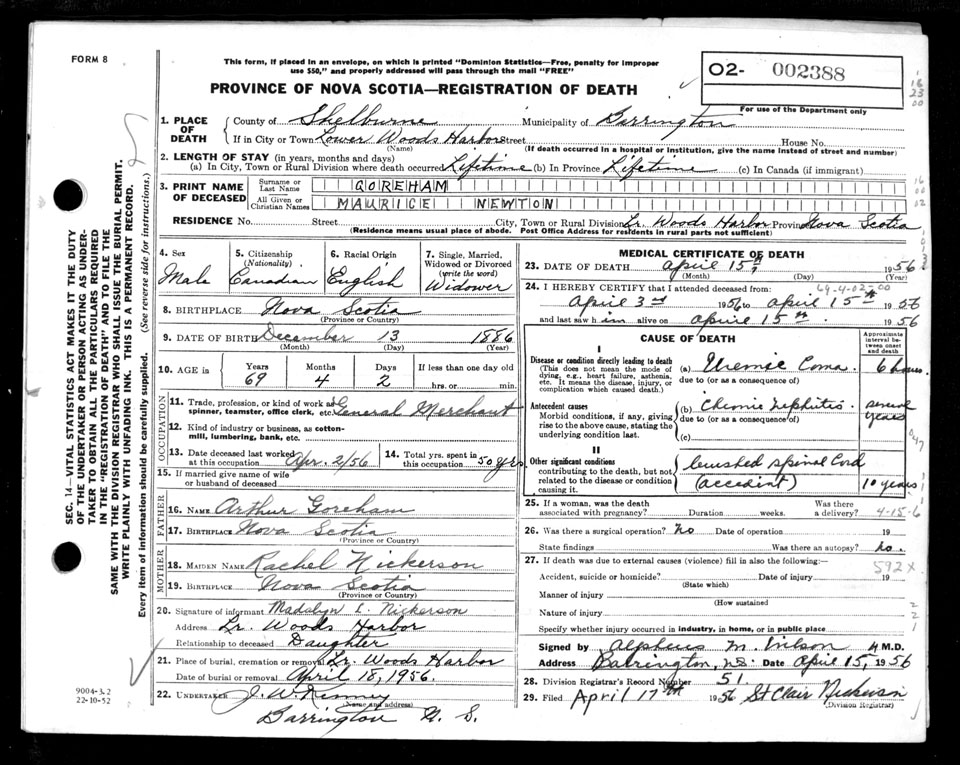 FORM 8
This form, if placed in an envelope, on which is printed "Dominion Statistics—Free, penalty for improper
use $50," and properly addressed will pass through the mail "FREE"
PROVINCE OF NOVA SCOTIA—REGISTRATION OF DEATH
02- 002388
For use of the Department only
16
23
00
1. PLACE OF DEATH
County of Shelburne Municipality of Barrington
If in City or Town Lower Woods Harbor Street House No.
(Name) (If death occurred in a hospital or institution, give the name instead of street and number)
2. LENGTH OF STAY (in years, months and days)
(a) In City, Town or Rural Division where death occurred Lifetime (b) In Province Lifetime (c) In Canada (if immigrant)
3. PRINT NAME OF DECEASED
Surname or Last Name GOREHAM
All Given or Christian Names MAURICE NEWTON
RESIDENCE No. Street City, Town or Rural Division Lr. Woods Harbor Province Nova Scotia
(Residence means usual place of abode. Post Office Address for residents in rural parts not sufficient)
4. Sex
Male
5. Citizenship
(Nationality)
Canadian
6. Racial Origin
English
7. Single, Married, Widowed or Divorced
(write the word)
Widower
8. BIRTHPLACE Nova Scotia
(Province or Country)
9. DATE OF BIRTH December 13 1886
(Month) (Day) (Year)
10. AGE in
Years Months Days If less than one day old
69 4 2 hrs. or min.
OCCUPATION
11. Trade, profession, or kind of work as spinner, teamster, office clerk, etc. General Merchant
12. Kind of industry or business, as cotton-mill, lumbering, bank, etc.
13. Date deceased last worked at this occupation Apr. 2/56
14. Total yrs. spent in this occupation 50 yrs
15. If married give name of wife or husband of deceased
FATHER
16. NAME Arthur Goreham
17. BIRTHPLACE Nova Scotia
(Province or Country)
MOTHER
18. MAIDEN NAME Rachel Nickerson
19. BIRTHPLACE Nova Scotia
(Province or Country)
20. Signature of informant Madalyn L. Nickerson
Address Lr. Woods Harbor
Relationship to deceased Daughter
21. Place of burial, cremation or removal Lr. Woods Harbor
Date of burial or removal April 18, 1956.
22. UNDERTAKER J. W. Kenney
(Name and address)
Barrington N. S.
MEDICAL CERTIFICATE OF DEATH
23. DATE OF DEATH April 15th 1956
(Month) (Day) (Year)
24. I HEREBY CERTIFY that I attended deceased from:
April 3rd 1956 to April 15th 1956
and last saw him alive on April 15th 1956
CAUSE OF DEATH
Approximate interval between onset and death
I
Disease or condition directly leading to death
(This does not mean the mode of dying, e.g., heart failure, asthenia, etc. It means the disease, injury, or complication which caused death.)
(a) Uremic Coma. 6 hours.
due to (or as a consequence of)
Antecedent causes
Morbid conditions, if any, giving rise to the above cause, stating the underlying condition last.
(b) Chronic Nephritis. several years
due to (or as a consequence of)
(c)
II
Other significant conditions
contributing to the death, but not related to the disease or condition causing it.
Crushed spinal Cord
(accident) 10 years
25. If a woman, was the death associated with pregnancy? Duration weeks. Was there a delivery?
4-15-6
26. Was there a surgical operation? No Date of operation 19
State findings Was there an autopsy? no.
27. If death was due to external causes (violence) fill in also the following:—
592X
Accident, suicide or homicide? Date of injury 19
(State which)
Manner of injury
(How sustained
Nature of injury
Specify whether injury occurred in industry, in home, or in public place
Signed by Alpheus M. Wilson M.D.
Address Barrington, N.S. Date April 15, 1956
28. Division Registrar's Record Number 51.
29. Filed April 17th 1956 St Clair Nickerson
(Division Registrar)
SEC. 14—VITAL STATISTICS ACT MAKES IT THE DUTY
OF THE UNDERTAKER OR PERSON ACTING AS UNDER-
TAKER TO OBTAIN ALL THE PARTICULARS REQUIRED
IN THE "REGISTRATION OF DEATH" AND TO FILE THE
SAME WITH THE DIVISION REGISTRAR WHO SHALL ISSUE THE BURIAL PERMIT.
WRITE PLAINLY WITH UNFADING INK. THIS IS A PERMANENT RECORD.
Every item of information should be carefully supplied. (See reverse side for instructions.)
9004-3.2
22-10-52